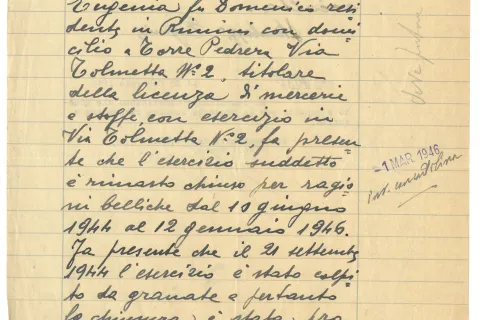 Eugenia fu Domenico resi
dente in Rimini con domi
cilio a Torre Pedrera Via
Tolmetta N° 2, titolare
della licenza di mercerie
e stoffe, con esercizio in
Via Tolmetta N° 2, fa presen
te che l'esercizio suddetto
è rimasto chiuso per ragio
ni belliche dal 10 giugno
1944 al 12 gennaio 1946.
Fa presente che il 21 settembre
1944 l'esercizio è stato colpi
to da granate e pertanto
la chiusura è stata pro
-1 MAR 1946